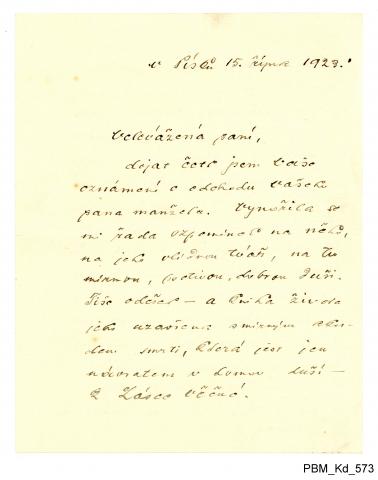 v Písku 15. října 1923.
Velevážená paní,
dojat četl jsem Vaše
oznámení o odchodu Vašeho
pana manžela. Vynořila se
mi řada vzpomínek na něho,
na jeho vlídnou tvář, na tu
mírnou, poctivou, dobrou duši.
Tiše odešel – a kniha života
jeho uzavřena smírným
smrti, která jest jen
návratem v domov duší –
k Lásce věčné.
PBM_Kd_573